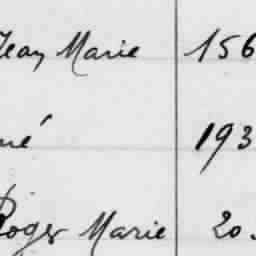 Jean Marie 156
né 193
Roger Marie 20.